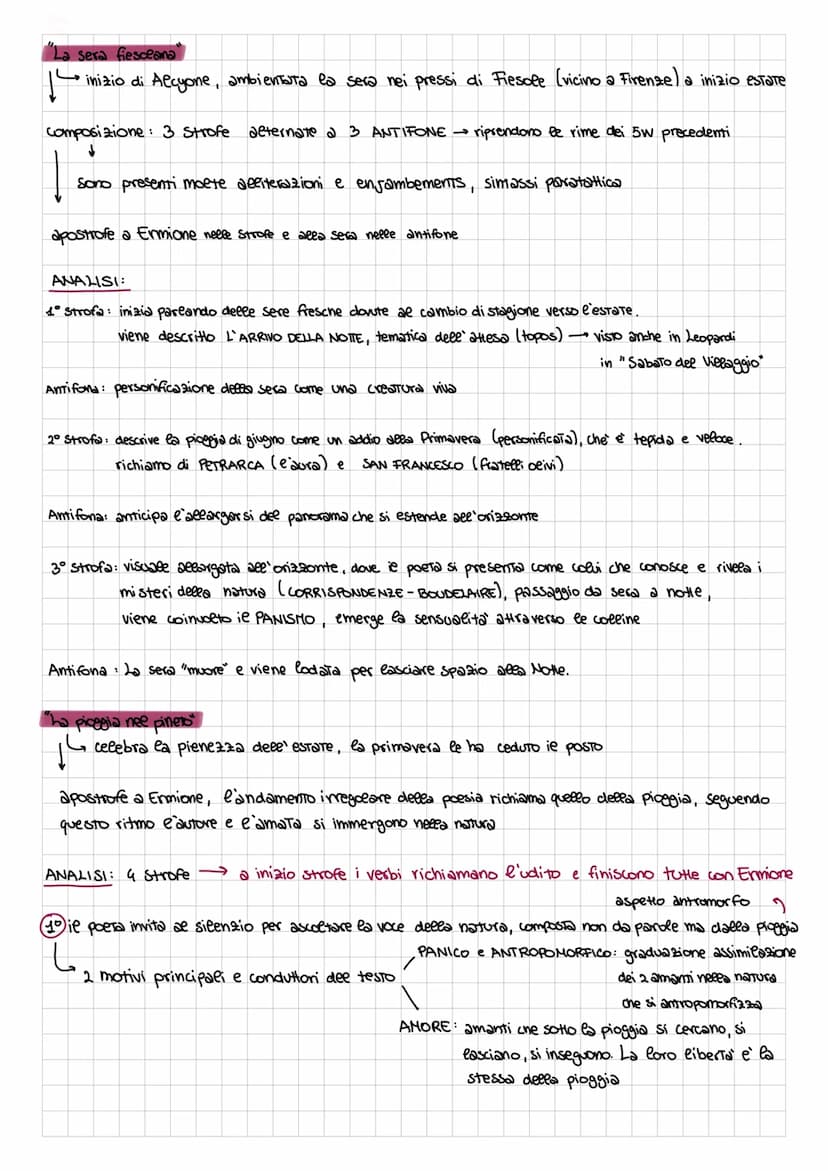 "La sera fiesolana"
↳ inizio di Alcyone, ambientata la sera nei pressi di Fiesole (vicino a Firenze) a inizio ESTATE
composizione: 3 strofe alternate a 3 ANTIFONE → riprendono le rime dei 5w precedenti
sono presenti molte alliterazioni e enjambements, sintassi paratattica
apostrofe a Ermione nelle strofe e alla sera nelle antifone
ANALISI:
1° strofa: inizia parlando delle sere fresche dovute al cambio di stagione verso l'estate.
viene descritto L'ARRIVO DELLA NOTTE, tematica dell'attesa (topos) → visto anche in Leopardi
in "Sabato del Villaggio"
Antifona: personificazione della sera come una creatura viva
2° strofa: descrive la pioggia di giugno come un addio alla Primavera (personificata), che è tepida e veloce.
richiamo di PETRARCA (l'aura) e SAN FRANCESCO (fratelli olivi)
Antifona: anticipa l'allargarsi del panorama che si estende all'orizzonte
3° strofa: visuale allargata all'orizzonte, dove il poeta si presenta come colui che conosce e rivela i
misteri della natura (CORRISPONDENZE - BOUDELAIRE), passaggio da sera a notte,
viene coinvolto il PANISMO, emerge la sensualità attraverso le colline
Antifona: La sera "muore" e viene lodata per lasciare spazio alla Notte.
"La pioggia nel pineto"
↳ celebra la pienezza dell'estate, la primavera le ha ceduto il posto
apostrofe a Ermione, l'andamento irregolare della poesia richiama quello della pioggia, seguendo
questo ritmo l'autore e l'amata si immergono nella natura
ANALISI: 4 strofe → a inizio strofe i verbi richiamano l'udito e finiscono tutte con Ermione
aspetto antromorfo
1° il poeta invita al silenzio per ascoltare la voce della natura, composta non da parole ma dalla pioggia
PANICO e ANTROPOMORFICO: graduazione assimilazione
2 motivi principali e conduttori del testo
dei 2 amanti nella natura
che si antropomorfizza
AMORE: amanti che sotto la pioggia si cercano, si
lasciano, si inseguono. La loro libertà è la
stessa della pioggia